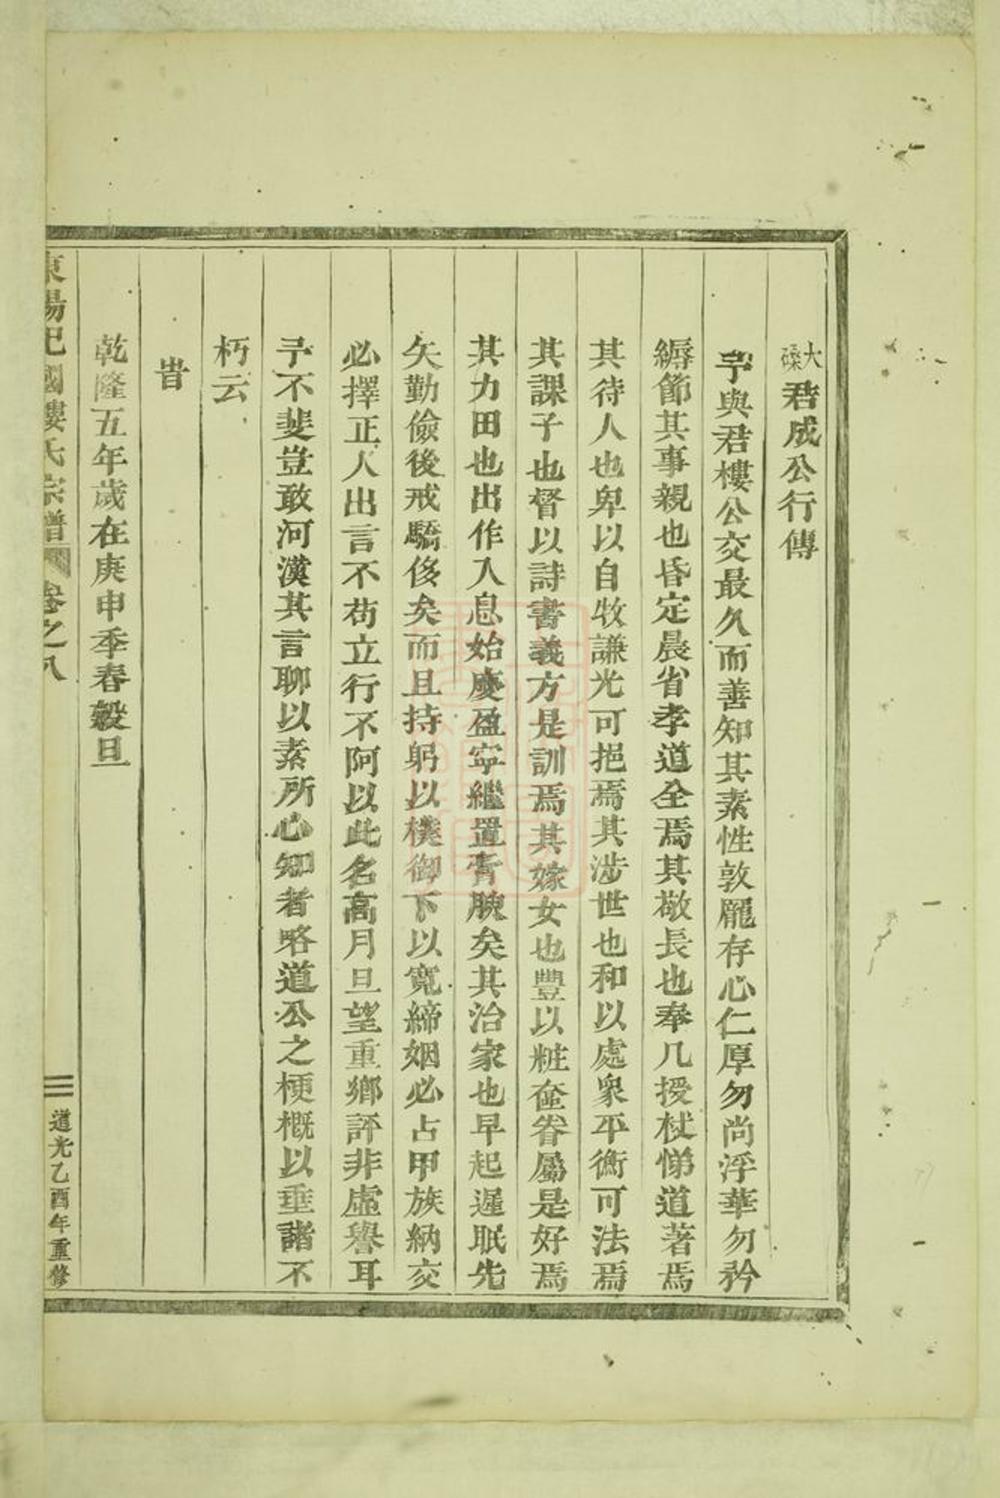 大磉君成公行傳
予與君樓公交最久而善知其素性敦龎存心仁厚勿尚浮華勿矜
縟節其事親也昏定晨省孝道全焉其敬長也奉几授杖悌道著焉
其待人也卑以自牧謙光可挹焉其涉世也和以處衆平衡可法焉
其課子也督以詩書義方是訓焉其嫁女也豐以粧奩眷屬是好焉
其力田也出作入息始慶盈寧繼置膏腴矣其治家也早起遲眠先
矢勤儉後戒驕侈矣而且持躬以樸御下以寬締姻必占甲族納交
必擇正人出言不苟立行不阿以此名高月旦望重鄉評非虛譽耳
予不斐豈敢河漢其言聊以素所心知者略道公之梗概以垂諸不
朽云
旹
乾隆五年歲在庚申季春穀旦
東陽巳國樓氏宗譜 卷之八 三 道光乙酉年重修